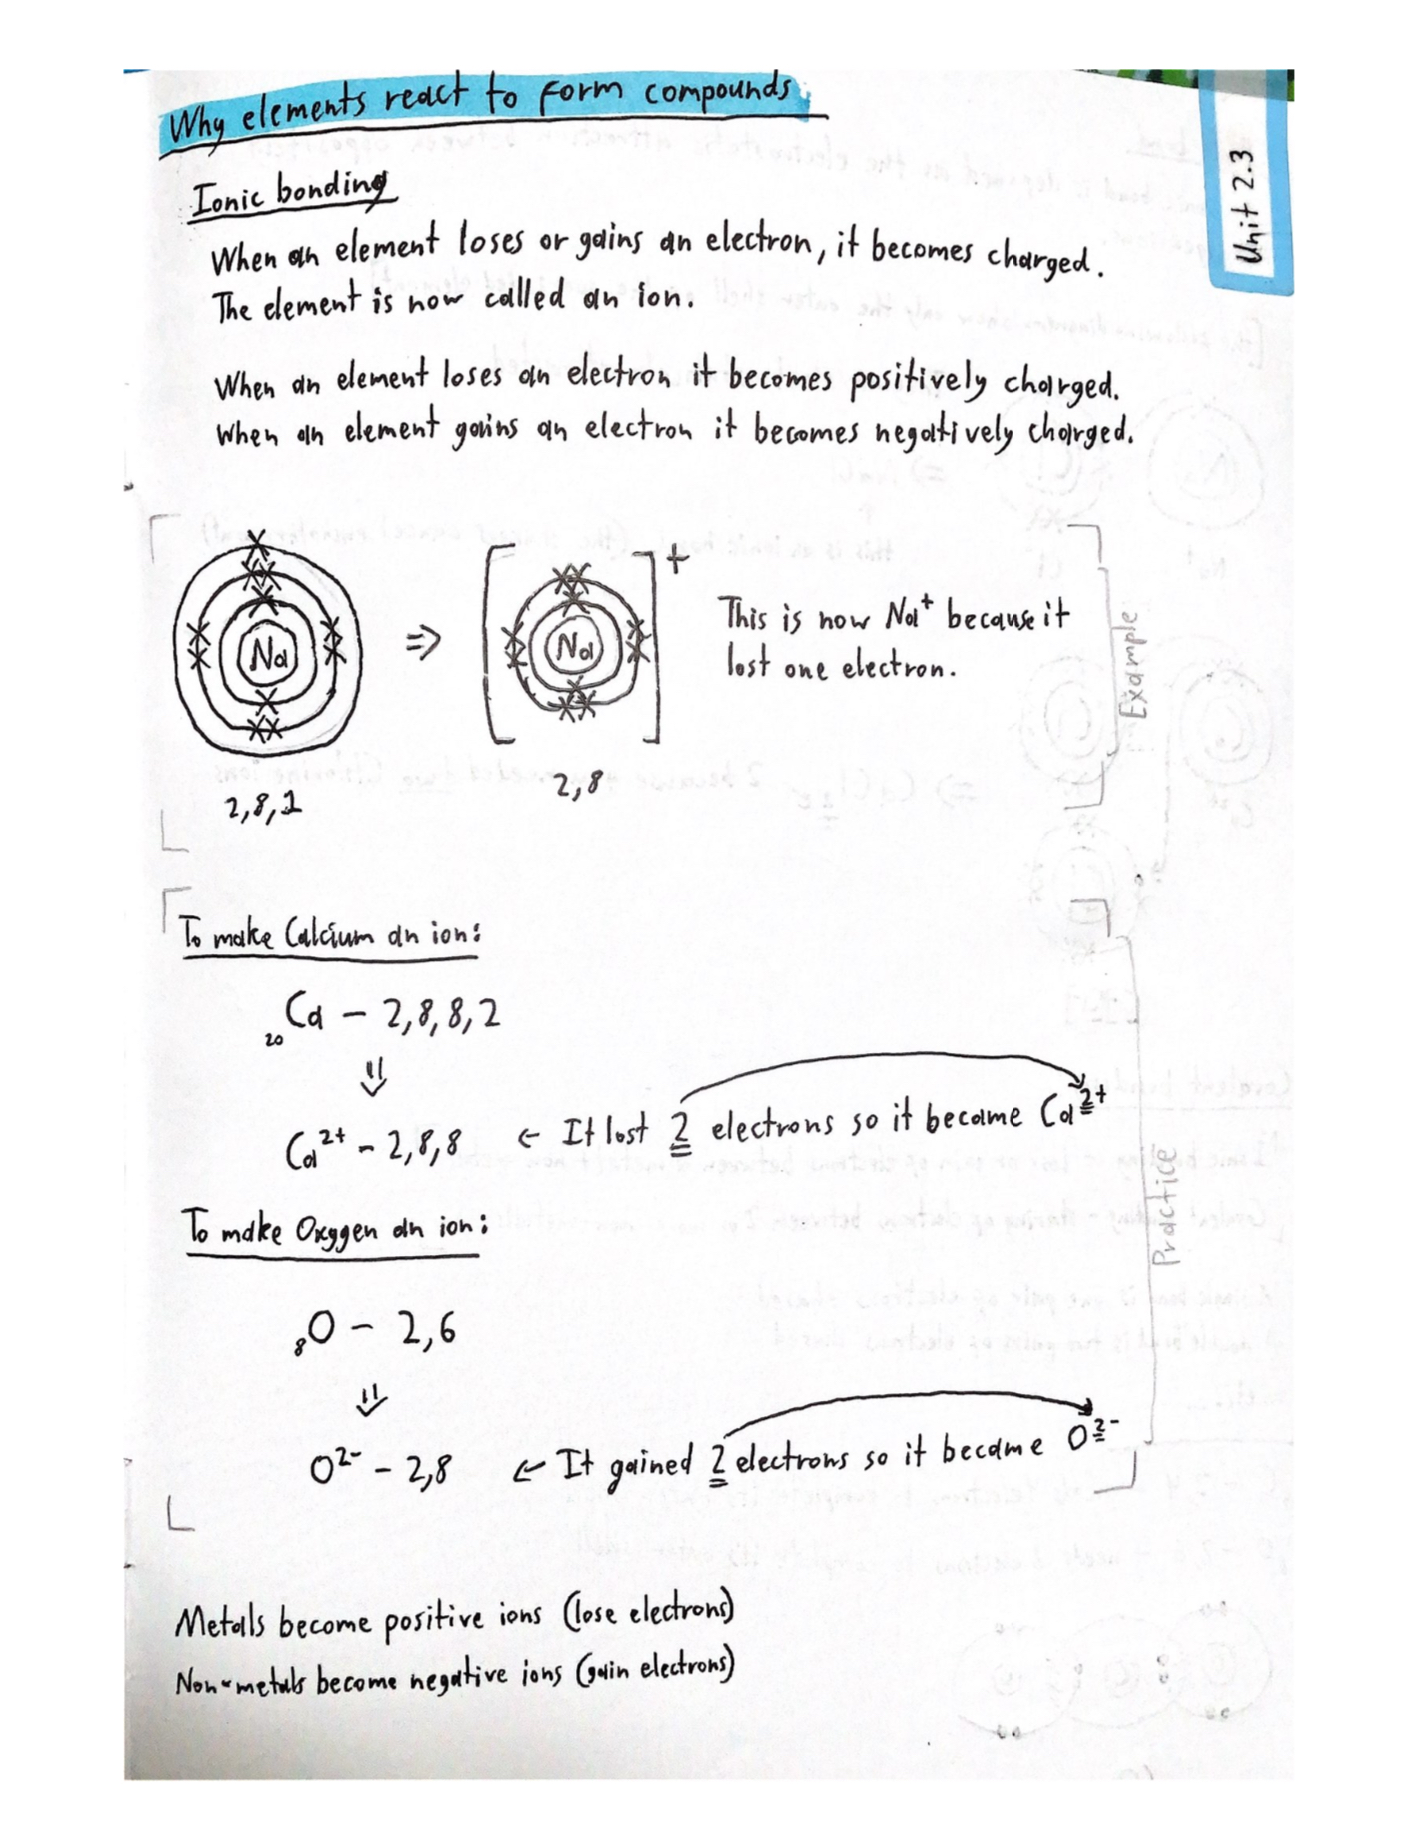 Why elements react to form compounds
Unit 2.3
Ionic bonding
When an element loses or gains an electron, it becomes charged.
The element is now called an ion.
When an element loses an electron it becomes positively charged.
When an element gains an electron it becomes negatively charged.
Na ⇒ [Na]+
This is now Na⁺ because it
lost one electron.
2,8,1
2,8
Example
To make Calcium an ion:
₂₀Ca – 2,8,8,2
⇓
Ca²⁺ – 2,8,8 ← It lost 2 electrons so it became Ca²⁺
To make Oxygen an ion:
₈O – 2,6
⇓
O²⁻ – 2,8 ← It gained 2 electrons so it became O²⁻
Practice
Metals become positive ions (lose electrons)
Non-metals become negative ions (gain electrons)